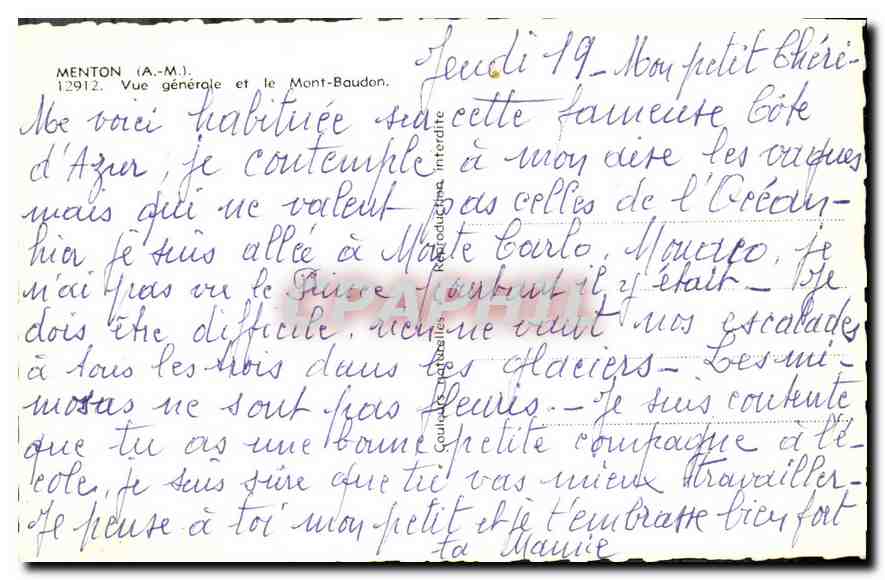 MENTON (A.-M.).
12912. Vue générale et le Mont-Baudon.
Jeudi 19 - Mon petit Chéri -
Me voici habituée sur cette fameuse Côte
d'Azur, je contemple à mon aise les vagues
mais qui ne valent pas celles de l'Océan -
hier je suis allée à Monte Carlo, Monaco, je
n'ai pas vu le Prince pourtant il y était - Je
dois être difficile, rien ne vaut nos escalades
à tous les trois dans les glaciers - Les mi-
mosas ne sont pas fleuris. - Je suis contente
que tu as une bonne petite compagne à l'é-
cole, je suis sûre que tu vas mieux travailler -
Je pense à toi mon petit et je t'embrasse bien fort
ta Mamie
Couleurs naturelles - Reproduction interdite
CPAPHIL